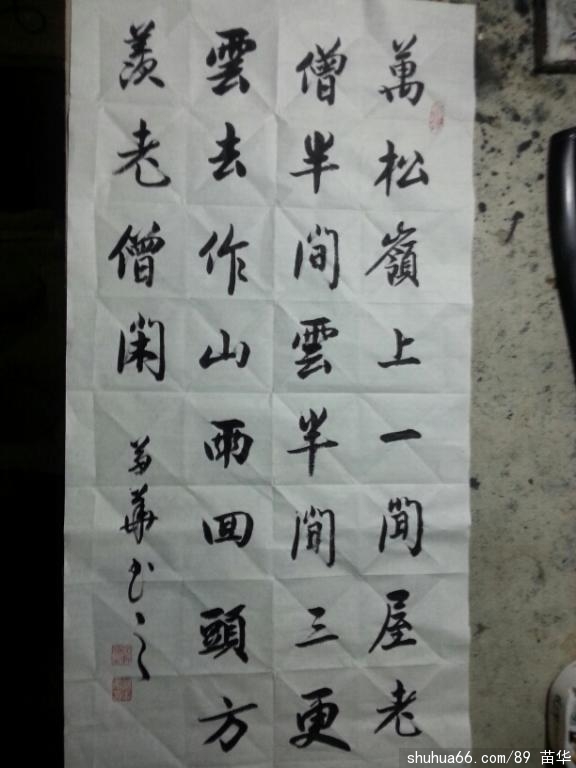 萬松嶺上一間屋老
僧半間雲半間三更
雲去作山雨回頭方
羨老僧閑
苗華书之
shuhua66.com/89 苗华